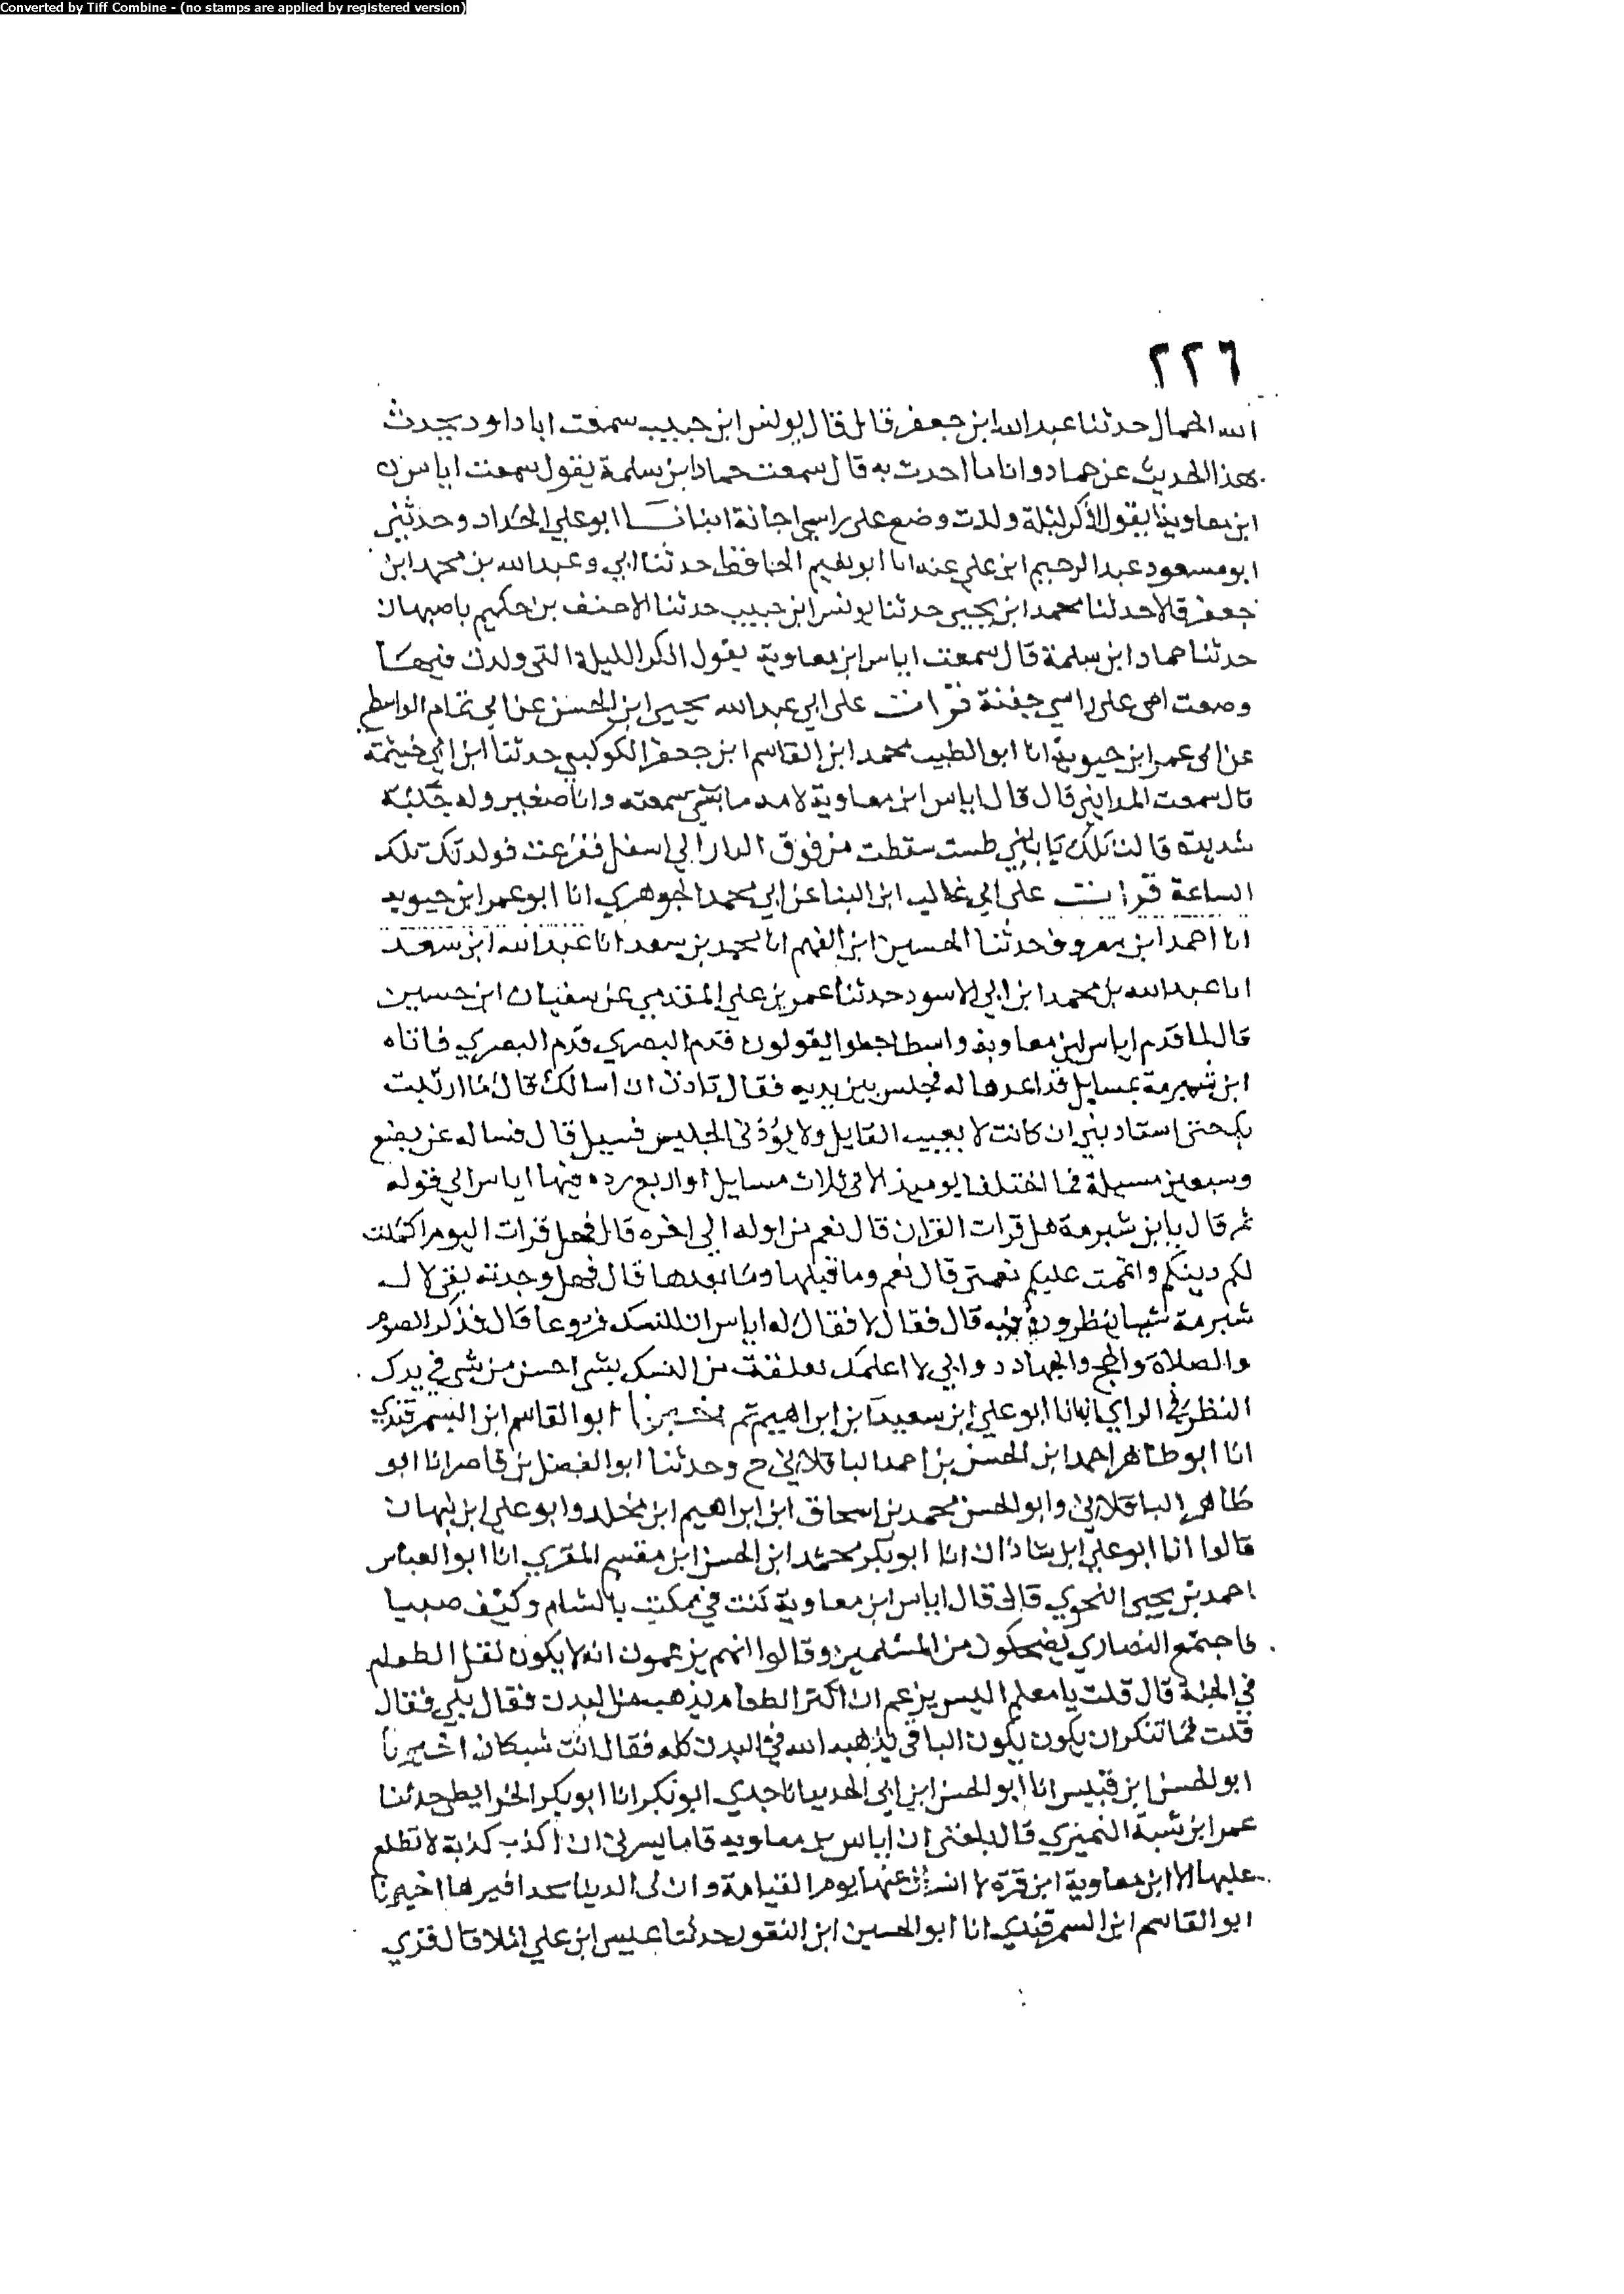 Converted by Tiff Combine - (no stamps are applied by registered version)
٢٢٦
الله الحمال حدثنا عبد الله ابن جعفر قال قال يونس ابن حبيب سمعت ابا داود يحدث
بهذا الحديث عن حماد وانا ما احدث به قال سمعت حماد ابن سلمة يقول سمعت اياس بن
ابن معاوية يقول اذكر ليلة ولدت وضع على راسي اجانة انبانا ابو علي الحداد وحدثني
ابو مسعود عبد الرحيم ابن علي عنه انا ابو نعيم الحافظ حدثنا ابي وعبد الله بن محمد ابن
جعفر قالا حدثنا محمد ابن يحيى حدثنا يونس ابن حبيب حدثنا الاحنف بن حكيم باصبهان
حدثنا حماد ابن سلمة قال سمعت اياس ابن معاوية يقول اذكر الليلة التي ولدت فيها
وضعت امي على راسي جفنة قرات على ابي عبد الله يحيى ابن الحسن عن ابي تمام الواسطي
عن ابي عمر ابن حيوية انا ابو الطيب محمد ابن القاسم ابن جعفر الكوكبي حدثنا ابن ابي خيثمة
قال سمعت المدايني قال قال اياس ابن معاوية لامه ما شي سمعته وانا صغير وله جلبة
شديدة قالت تلك يا بني طست سقطت من فوق الدار الي اسفل ففزعت فولدتك تلك
الساعة قرات على ابي غالب ابن البنا عن ابي محمد الجوهري انا ابو عمر ابن حيويه
انا احمد ابن معروف حدثنا الحسين ابن الفهم انا محمد بن سعد انا عبد الله ابن سعد
انا عبد الله بن محمد ابن ابي الاسود حدثنا عمر بن علي المقدمي عن سفيان ابن حسين
قال لما قدم اياس ابن معاوية واسط جعلوا يقولون قدم البصري قدم البصري فاتاه
ابن شبرمة بمسايل قد اعدها له فجلس بين يديه فقال تاذن ان اسالك قال ما ارتبت
بك حتى استاذنتني ان كانت لا تعيب القايل ولا يؤذى الجليس فسيل قال فساله عن بضع
وسبعين مسيلة فما اختلفا يوميذ الا في ثلاث مسايل او اربع رده فيها اياس الي قوله
ثم قال يا بن شبرمة هل قرات القران قال نعم من اوله الي اخره قال فهل قرات اليوم اكملت
لكم دينكم واتممت عليكم نعمتي قال نعم وما قبلها وما بعدها قال فهل وجدته بقى لال
شبرمة شيا ينظرون فيه قال فقال لا فقال له اياس ان للنسك فروعا قال فذكر الصوم
والصلاة والحج والجهاد واني لا اعلمك تعلقت من النسك بشي احسن من شي في يدك
النظر في الراي انبانا ابو علي ابن سعيد ابن ابراهيم ثم اخبرنا ابو القاسم ابن السمرقندي
انا ابو طاهر احمد ابن الحسن بن احمد الباقلاني ح وحدثنا ابو الفضل بن ناصر انا ابو
طاهر الباقلاني وابو الحسن محمد بن اسحاق ابن ابراهيم ابن مخلد وابو علي ابن نبهان
قالوا انا ابو علي ابن شاذان انا ابو بكر محمد ابن الحسن ابن مقسم المقري انا ابو العباس
احمد بن يحيى النحوي قال قال اياس ابن معاوية كنت في مكتب بالشام وكنت صبيا
فاجتمع النصاري يضحكون من المسلمين وقالوا انهم يزعمون انه لا يكون ثفل الطعام
في الجنة قال قلت يا معلم اليس يزعم ان اكثر الطعام يذهب من البدن فقال بلي فقال
قلت فما تنكر ان يكون يكون الباقي يذهبه الله في البدن كله فقال انت شيطان اخبرنا
ابو الحسن ابن قبيس انا ابو الحسن ابن ابي الحديد انا جدي ابو بكر انا ابو بكر الخرايطي حدثنا
عمر ابن شبة النميري قال بلغني ان اياس بن معاويه قال ما يسرني ان اكذب كذبة لا تطلع
عليها الا ابن معاوية ابن قرة لا اسال عنها يوم القيامة وان لي الدنيا بحذافيرها اخبرنا
ابو القاسم ابن السمرقندي انا ابو الحسين ابن النقور حدثنا عيسى ابن علي املا قال قري